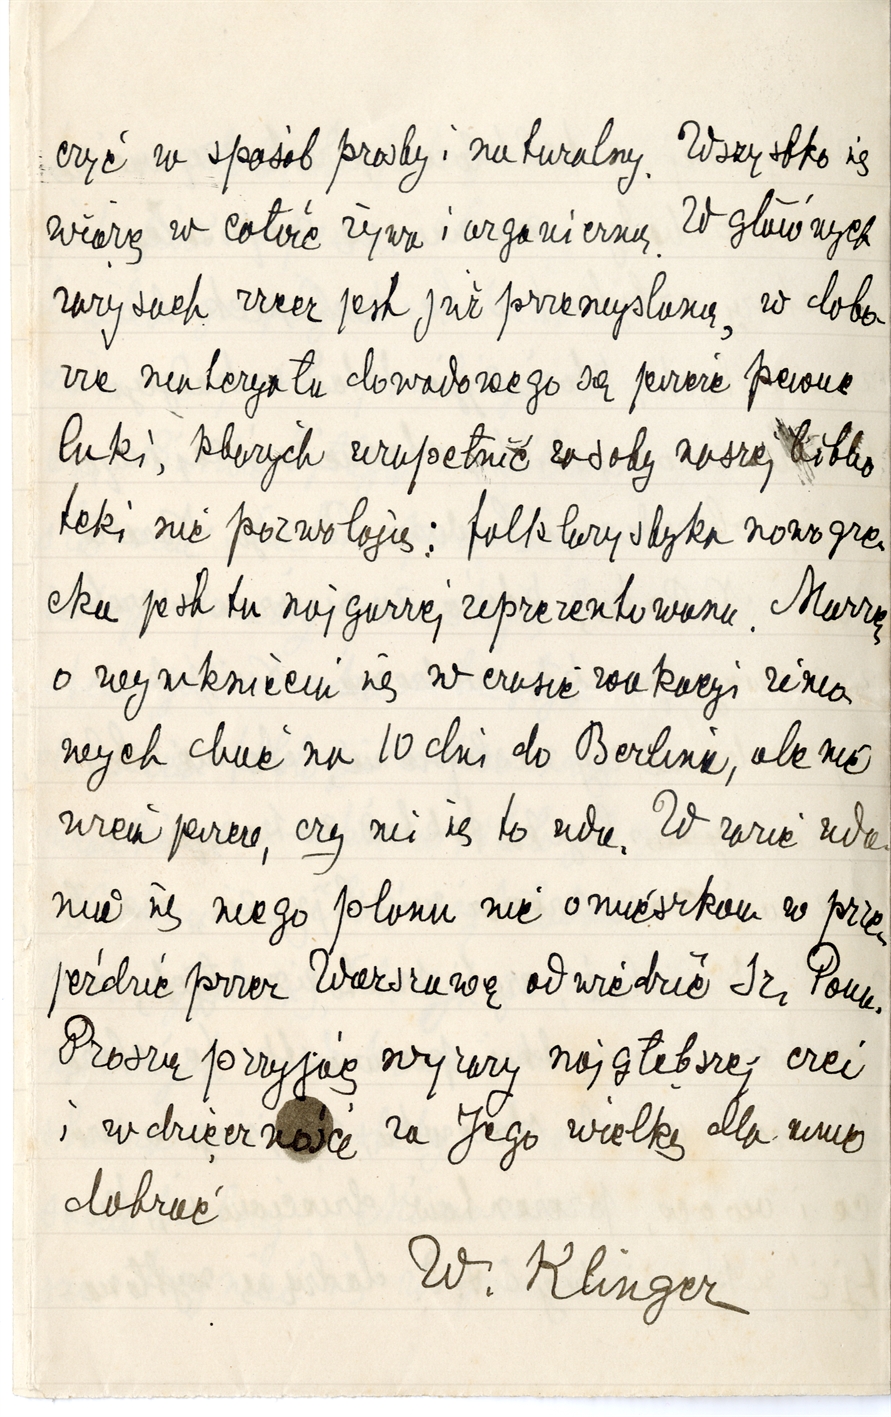 czyć w sposób prosty i naturalny. Wszystko się
wiąże w całość żywą i organiczną. W głównych
zarysach rzecz jest już przemyślana, w dobo-
rze materyału dowodowego są jeszcze pewne
luki, których uzupełnić zasoby naszej biblio
teki nie pozwalają: folklorystyka nowogre-
cka jest tu najgorzej reprezentowana. Marzę
o wymknięciu się w czasie wakacyi zimo
wych choć na 10 dni do Berlina, ale nie
wiem jeszcze, czy mi się to uda. W razie uda-
nia się mego planu nie omieszkam w prze-
jeździe przez Warszawę odwiedzić Sz. Pana.
Proszę przyjąć wyrazy najgłębszej czci
i wdzięczności za Jego wielką dla mnie
dobroć
W. Klinger